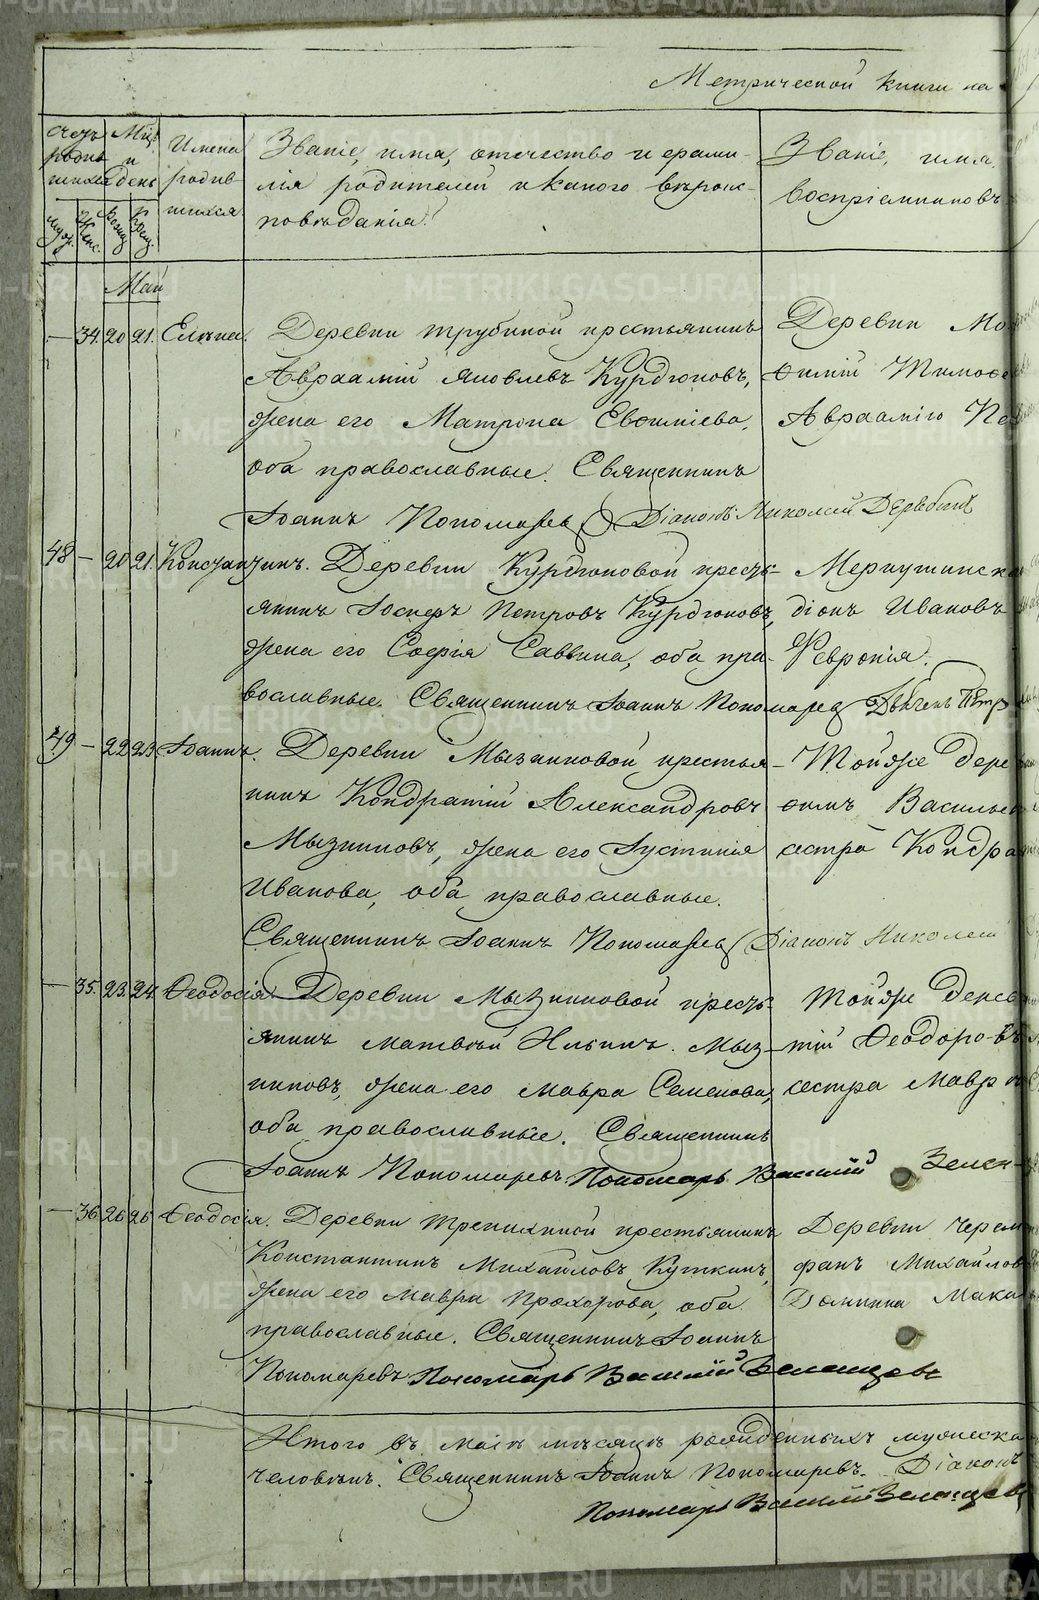 Метрической книги на
Счетъ родив шихся
Мѣс. и день
Имена родив шихся
Званіе, имя, отчество и фами-
лія родителей и какого вѣроис-
повѣданія?
Званіе, имя,
воспріемниковъ
муж. Женс. Рожд. Крещ.
Май
— 34. 20 21. Елена. Деревни Трубиной крестьянинъ
Авраамій Яковлевъ Курдюковъ,
жена его Матрона Евѳиміева,
оба православные. Священникъ
Іоаннъ Пономаревъ Діаконъ Николай
Деревни
ѳимій
Аврааміго
48 — 20 21. Константинъ. Деревни Курдюковой кресть-
янинъ Іосифъ Петровъ Курдюковъ,
жена его Софія Саввина, оба пра-
вославные. Священникъ Іоаннъ Пономарев
Меркушинска
діонъ Ивановъ
Февронія.
49 — 22 23 Іоаннъ. Деревни Мызниковой крестья-
нинъ Кондратій Александровъ
Мызниковъ, жена его Іустинія
Иванова, оба православные.
Священникъ Іоаннъ Пономарев Діаконъ Николай
Той же дере
ѳимъ Василье
сестра Кондра
— 35. 23. 24. Ѳеодосія. Деревни Мызниковой кресть-
янинъ Матвѣй Ильинъ Мыз-
никовъ, жена его Мавра Семенова,
оба православные. Священникъ
Іоаннъ Пономаревъ Пономарь Василій Зелен-
Той же дерев
тій Ѳеодоровъ
сестра Мавр
— 36 26 26 Ѳеодосія. Деревни Трепихиной крестьянинъ
Константинъ Михайловъ Куткинъ,
жена его Мавра Прохорова, оба
православные. Священникъ Іоаннъ
Пономаревъ Пономарь Василій
Деревни Черем
фанъ Михайлов
Домника Мака
Итого въ Маіѣ мѣсяцѣ рожденныхъ мужеска
человѣкъ. Священникъ Іоаннъ Пономаревъ. Діаконъ
Пономарь Василій
METRIKI.GASO-URAL.RU